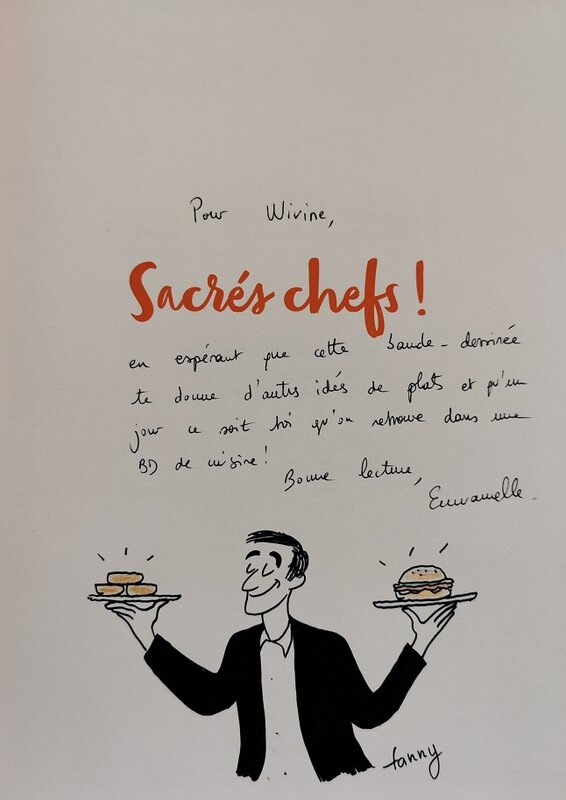 Pour Wivine,
Sacrés chefs !
en espérant que cette bande-dessinée
te donne d'autres idées de plats et qu'un
jour ce soit toi qu'on retrouve dans une
BD de cuisine !
Bonne lecture,
Emmanuelle.
fanny